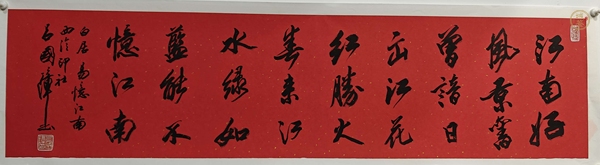 江南好
風景舊
曾諳日
出江花
紅勝火
春來江
水綠如
藍能不
憶江南
白居易憶江南
西泠印社